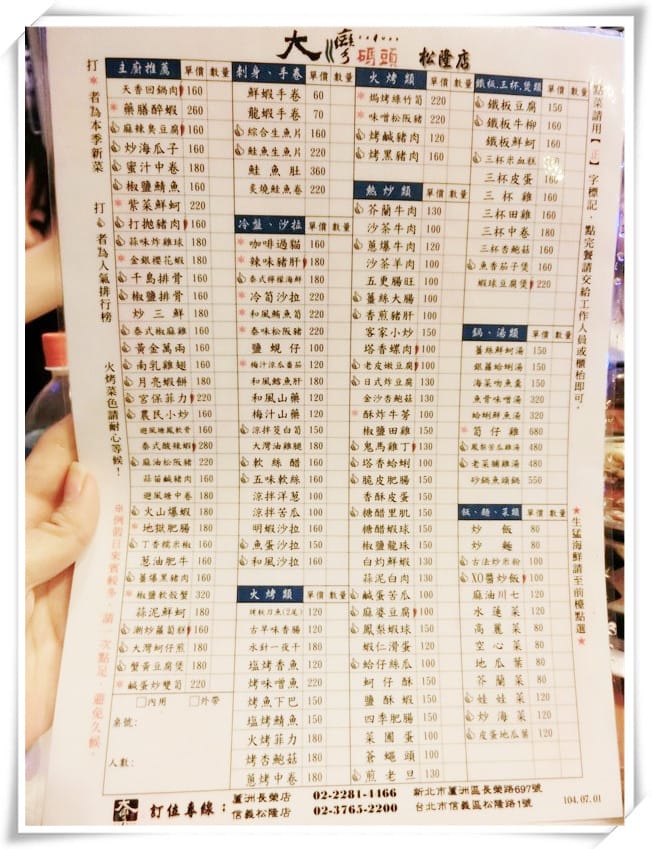 大灣碼頭 松隆店
打*者為本季新菜
打 者為人氣排行榜
火烤菜色請耐心等候!
點菜請用【正】字標記,點完餐請交給工作人員或櫃枱即可。
*生猛海鮮請至前檯點選*
主廚推薦 單價 數量
天香回鍋肉 160
*藥膳醉蝦 260
麻辣臭豆腐 160
炒海瓜子 160
蜜汁中卷 180
椒鹽鯖魚 160
*紫菜鮮蚵 220
打拋豬肉 160
蒜味炸雞球 180
*金銀櫻花蝦 180
千島排骨 160
椒鹽排骨 160
炒三鮮 180
泰式椒麻雞 160
黃金萬兩 160
南乳雞翅 160
月亮蝦餅 180
宮保菲力 220
農民小炒 160
避風塘鳳軟骨 160
泰式酸辣蝦 280
麻油松阪豬 220
蒜苗鹹豬肉 160
避風塘中卷 180
火山爆蝦 180
*地獄肥腸 180
丁香糯米椒 160
蔥油肥牛 160
薑爆黑豬肉 160
*椒鹽軟殼蟹 320
蒜泥鮮蚵 180
潮炒蘿蔔糕 160
大灣蚵仔煎 180
蟹黃豆腐煲 180
*鹹蛋炒雙筍 220
□內用 □外帶
桌號:
人數:
刺身、手卷 單價 數量
鮮蝦手卷 60
龍蝦手卷 70
綜合生魚片 160
鮭魚生魚片 220
鮭魚肚 360
炙燒鮭魚卷 220
冷盤、沙拉 單價 數量
*咖哩過貓 160
*辣味豬肝 180
泰式檸檬海鮮 180
*冷筍沙拉 220
*和風鮪魚筍 220
*泰味松阪豬 220
鹽蜆仔 100
*梅汁涼瓜番茄 120
和風鱈魚肝 180
和風山藥 120
梅汁山藥 120
涼拌茭白筍 150
大灣油雞腿 180
軟絲醋 160
五味軟絲 160
涼拌洋蔥 100
涼拌苦瓜 100
明蝦沙拉 160
魚蛋沙拉 150
和風沙拉 160
火烤類 單價 數量
烤秋刀魚(2尾) 120
古早味香腸 120
水針一夜干 180
塩烤香魚 220
烤味噌魚 220
烤魚下巴 150
塩烤鯖魚 150
火烤菲力 180
烤杏鮑菇 180
蔥烤中卷 180
火烤類 單價 數量
*焗烤綠竹筍 220
*味噌松阪豬 220
烤鹹豬肉 120
烤黑豬肉 160
熱炒類 單價 數量
芥蘭牛肉 130
沙茶牛肉 100
蔥爆牛肉 120
沙茶羊肉 100
五更腸旺 100
薑絲大腸 100
香煎豬肝 100
客家小炒 150
塔香螺肉 100
老皮嫩豆腐 100
日式炸豆腐 130
金沙杏鮑菇 130
*酥炸牛蒡 100
椒鹽田雞 150
鬼馬雞丁 130
塔香蛤蜊 100
脆皮肥腸 150
香酥皮蛋 150
糖醋里肌 150
糖醋蝦球 150
椒鹽龍珠 150
白灼鮮蝦 130
蒜泥白肉 130
鹹蛋苦瓜 100
麻婆豆腐 100
鳳梨蝦球 150
蝦仁滑蛋 120
蛤仔絲瓜 100
蚵仔酥 150
鹽酥蝦 150
四季肥腸 150
菜圃蛋 100
蒼蠅頭 100
煎老旦 130
鐵板.三杯.煲類 單價 數量
鐵板豆腐 150
鐵板牛柳 160
鐵板鮮蚵 160
三杯米血糕
三杯皮蛋 160
三杯雞 160
三杯田雞 160
三杯中卷 180
三杯杏鮑菇 160
魚香茄子煲 160
蝦球豆腐煲 220
鍋、湯類 單價 數量
薑絲鮮蚵湯 150
銀蘿蛤蜊湯 150
海菜吻魚羹 150
魚骨味噌湯 320
蛤蜊鮮魚湯 320
*筍仔雞 680
鳳梨苦瓜雞湯 480
老菜脯雞湯 480
砂鍋魚頭鍋 550
飯、麵、菜類 單價 數量
炒飯 80
炒麵 80
古法炒米粉 100
XO醬炒飯 100
麻油川七 120
水蓮菜 120
高麗菜 80
空心菜 80
地瓜葉 80
芥蘭菜 80
娃娃菜 120
炒海菜 120
皮蛋地瓜葉 120
訂位專線:
蘆洲長榮店 02-2281-4466 新北市蘆洲區長榮路697號
信義松隆店 02-3765-2200 台北市信義區松隆路1號
104.07.01